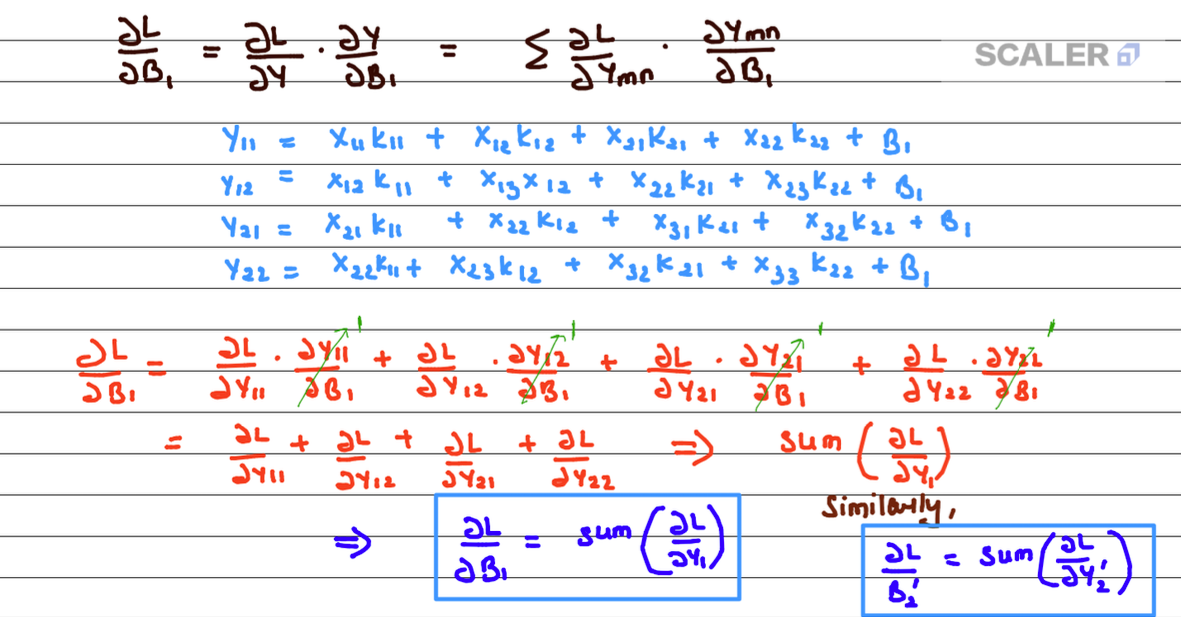 ∂L/∂B₁ = ∂L/∂Y · ∂Y/∂B₁ = Σ ∂L/∂Yₘₙ · ∂Yₘₙ/∂B₁
SCALER
Y₁₁ = X₁₁K₁₁ + X₁₂K₁₂ + X₂₁K₂₁ + X₂₂K₂₂ + B₁
Y₁₂ = X₁₂K₁₁ + X₁₃X₁₂ + X₂₂K₂₁ + X₂₃K₂₂ + B₁
Y₂₁ = X₂₁K₁₁ + X₂₂K₁₂ + X₃₁K₂₁ + X₃₂K₂₂ + B₁
Y₂₂ = X₂₂K₁₁ + X₂₃K₁₂ + X₃₂K₂₁ + X₃₃K₂₂ + B₁
1 1 1 1
∂L/∂B₁ = ∂L/∂Y₁₁ · ∂Y₁₁/∂B₁ + ∂L/∂Y₁₂ · ∂Y₁₂/∂B₁ + ∂L/∂Y₂₁ · ∂Y₂₁/∂B₁ + ∂L/∂Y₂₂ · ∂Y₂₂/∂B₁
= ∂L/∂Y₁₁ + ∂L/∂Y₁₂ + ∂L/∂Y₂₁ + ∂L/∂Y₂₂ ⇒ Sum (∂L/∂Y₁)
Similarly,
⇒ ∂L/∂B₁ = sum (∂L/∂Y₁)
∂L/B₂' = sum (∂L/∂Y₂')